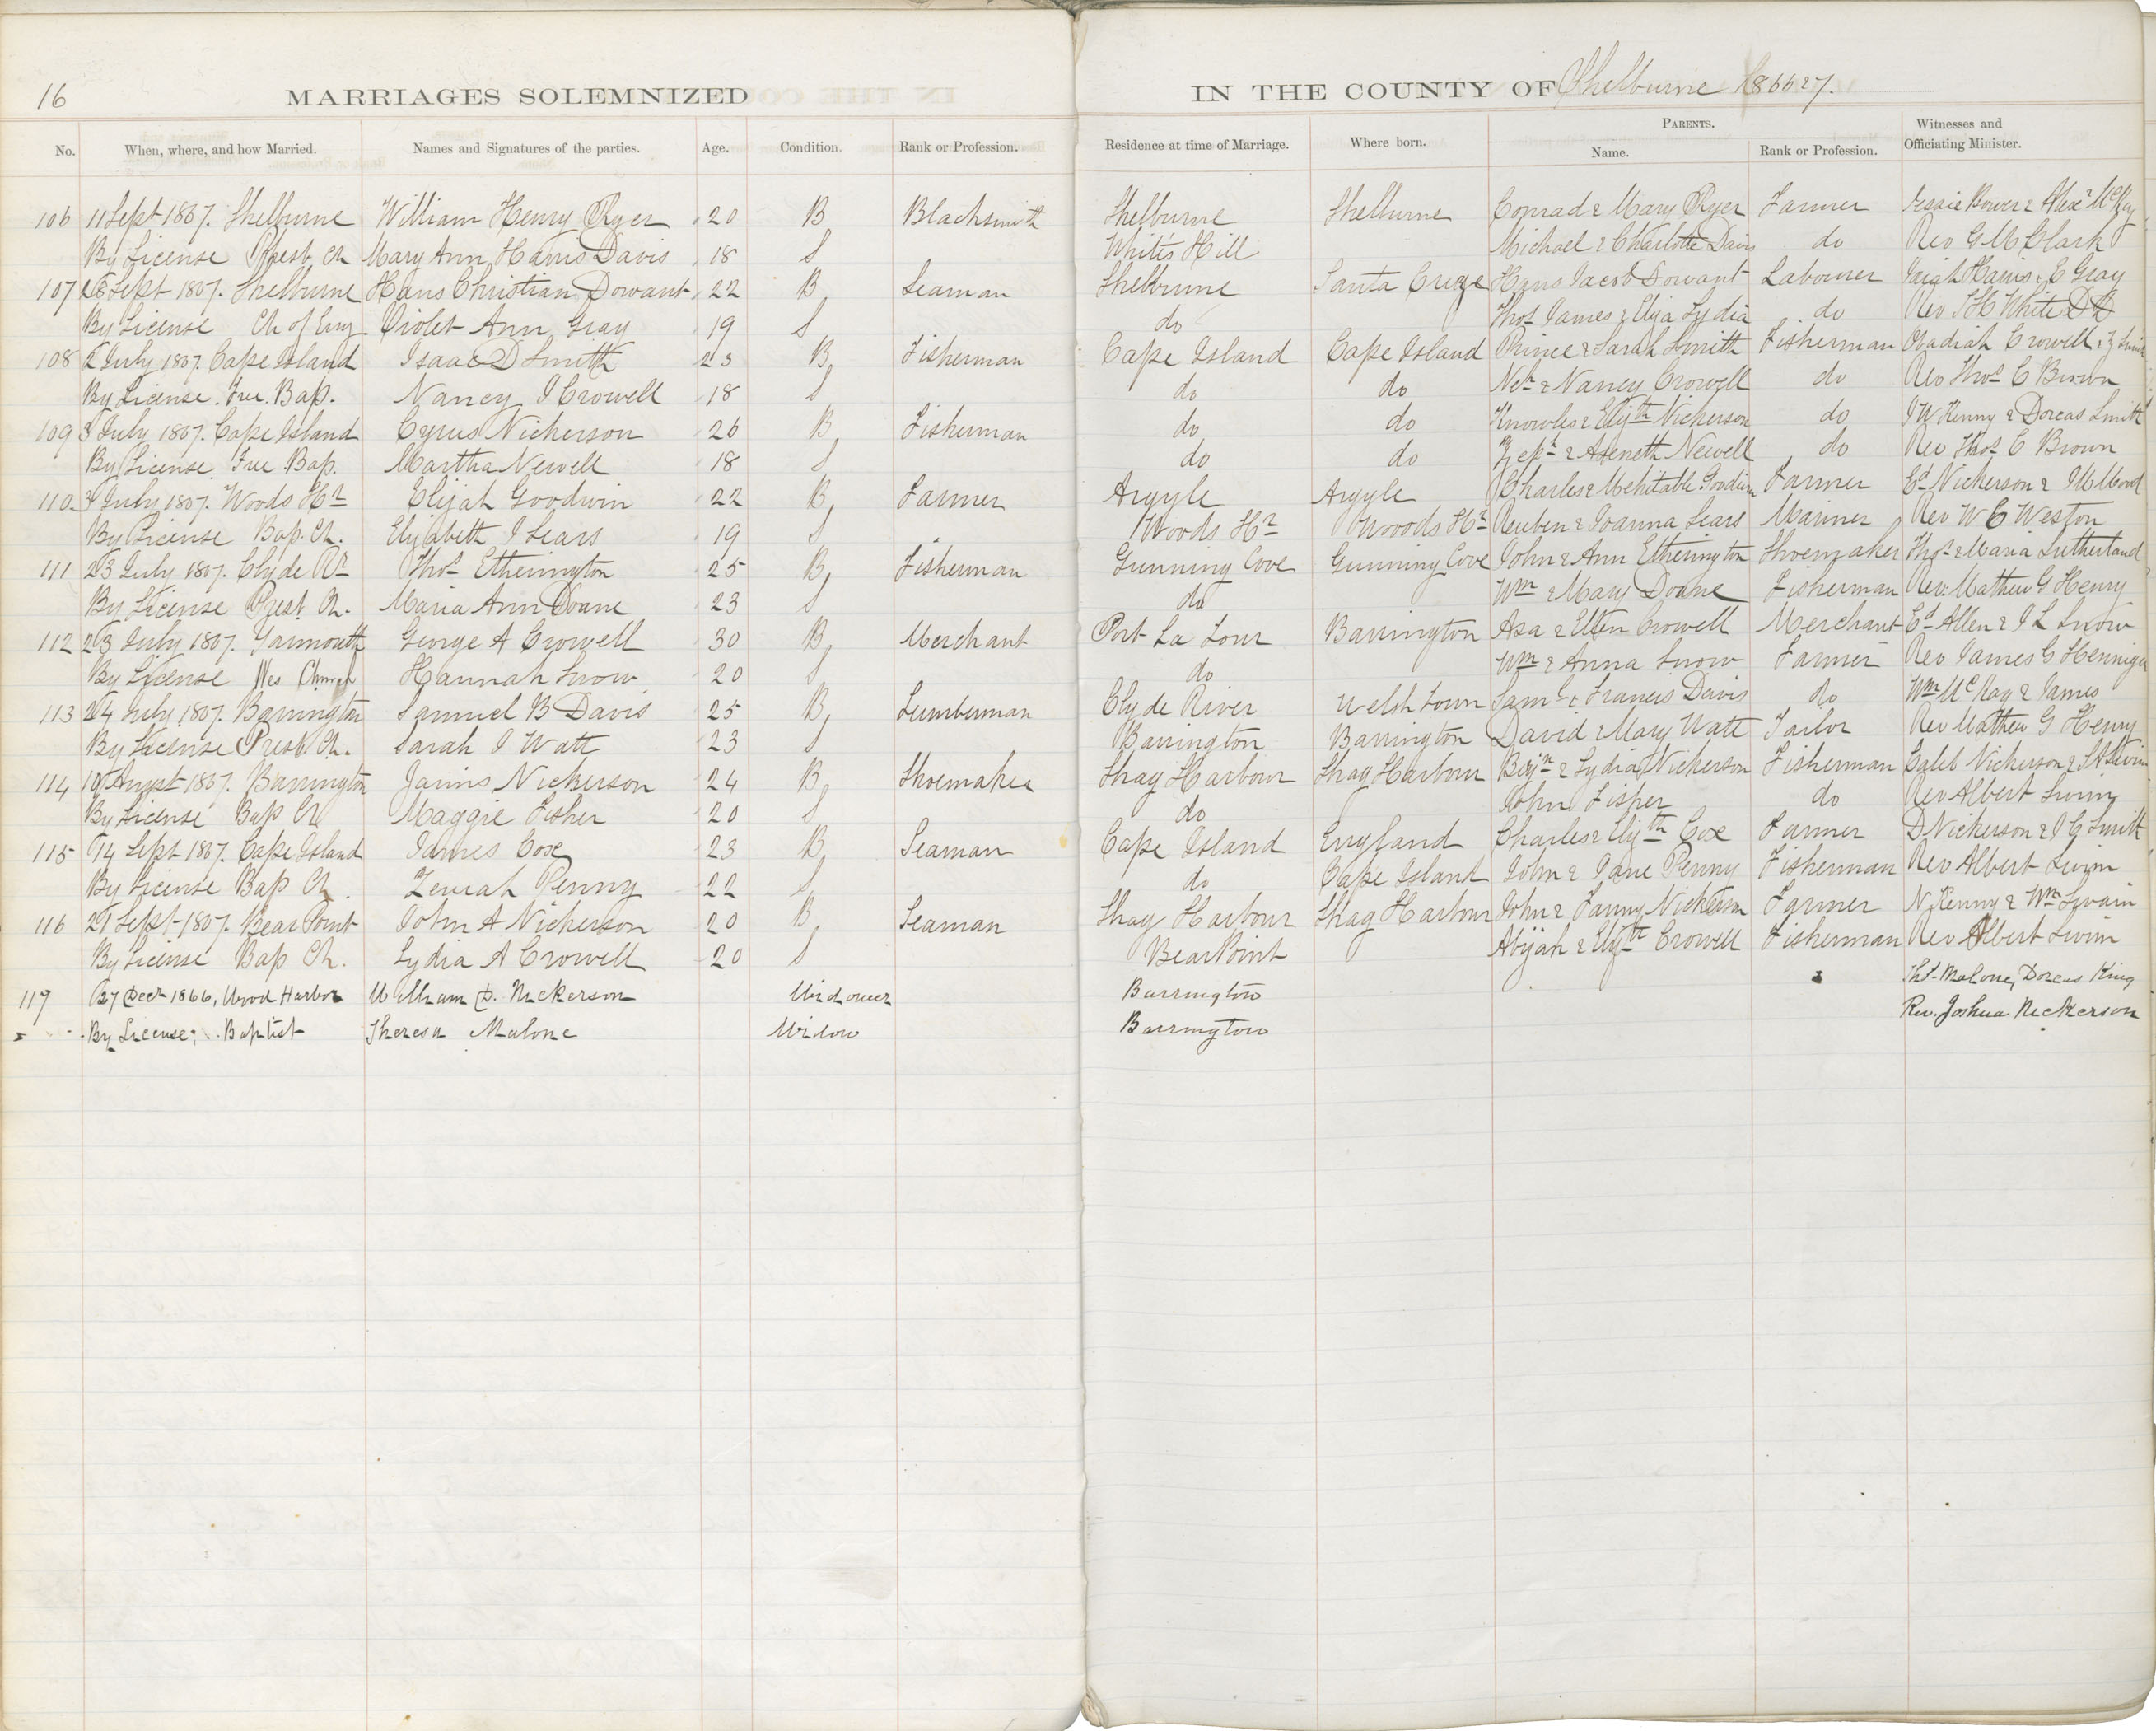 16 MARRIAGES SOLEMNIZED IN THE COUNTY OF Shelburne 1866 & 7.
No. When, where, and how Married. Names and Signatures of the parties. Age. Condition. Rank or Profession. Residence at time of Marriage. Where born. PARENTS. Name. Rank or Profession. Witnesses and Officiating Minister.
106 11 Sept 1867. Shelburne William Henry Ryer 20 B Blacksmith Shelburne Shelburne Conrad & Mary Ryer Farmer Jessie Bower & Alexr McKay
By License Prest Ch Mary Ann Harris Davis 18 S White's Hill Michael & Charlotte Davis do Rev G M Clark
107 Sept 1867. Shelburne Hans Christian Dowant 22 B Seaman Shelburne Santa Hans Jacob Dowant Labourer Harris & E Gray
By License Ch of Eng Violet Ann Gray 19 S do Thos James & Eliza Lydia do Rev White DD
108 July 1867. Cape Island Isaac D Smith 23 B Fisherman Cape Island Cape Island Prince & Sarah Smith Fisherman Obadiah Crowell &
By License. Free. Bap. Nancy J Crowell 18 S do do & Nancy Crowell do Rev Thos C Brown
109 3 July 1867. Cape Island Cyrus Nickerson 26 B Fisherman do do Knowles & Elizth Nickerson do J W Kenny & Dorcas Smith
By License. Free. Bap. Martha Newell 18 S do do & Aseneth Newell do Rev Thos C Brown
110 3 July 1867. Woods Hr Elijah Goodwin 22 B Farmer Argyle Argyle Charles & Mehitable Goodwin Farmer Ed Nickerson &
By License Bap. Ch. Elizabeth J Sears 19 S Woods Hr Woods Hr Reuben & Joanna Sears Mariner Rev W C Weston
111 23 July 1867. Clyde Rr Thos Etherington 25 B Fisherman Gunning Cove Gunning Cove John & Ann Etherington Shoemaker Thos & Maria Sutherland
By License Prest Ch. Maria Ann Doane 23 S do Wm & Mary Doane Fisherman Rev. Mathew G Henry
112 23 July 1867. Yarmouth George A Crowell 30 B Merchant Port La Tour Barrington Asa & Ellen Crowell Merchant Ed Allen & J L Snow
By License Wes Church Hannah Snow 20 S do Wm & Anna Snow Farmer Rev James G Hennigar
113 24 July 1867. Barrington Samuel B Davis 25 B Lumberman Clyde River Welsh Town Saml & Frances Davis do Wm McKay & James
By License Prest Ch. Sarah J Watt 23 S Barrington Barrington David & Mary Watt Tailor Rev Mathew G Henry
114 Augst 1867. Barrington Jarins Nickerson 24 B Shoemaker Shag Harbour Shag Harbour Benjn & Lydia Nickerson Fisherman Caleb Nickerson &
By License Bap Ch Maggie Fisher 20 S do John Fisher do Rev Albert Swim
115 14 Sept 1867. Cape Island James Cox 23 B Seaman Cape Island England Charles & Elizth Cox Farmer D Nickerson & J G Smith
By License Bap Ch. Zeruah Penny 22 S do Cape Island John & Jane Penny Fisherman Rev Albert Swim
116 21 Sept 1867. Bear Point John A Nickerson 20 B Seaman Shag Harbour Shag Harbour John & Fanny Nickerson Farmer N Kenny & Wm Swain
By License Bap Ch. Lydia A Crowell 20 S Bear Point Abijah & Elizth Crowell Fisherman Rev Albert Swim
117 27 Decr 1866, Wood Harbor William D. Nickerson Widower Barrington Thos. Malone, Dorcas King
By License; Baptist Theresa Malone Widow Barrington Rev. Joshua Nickerson